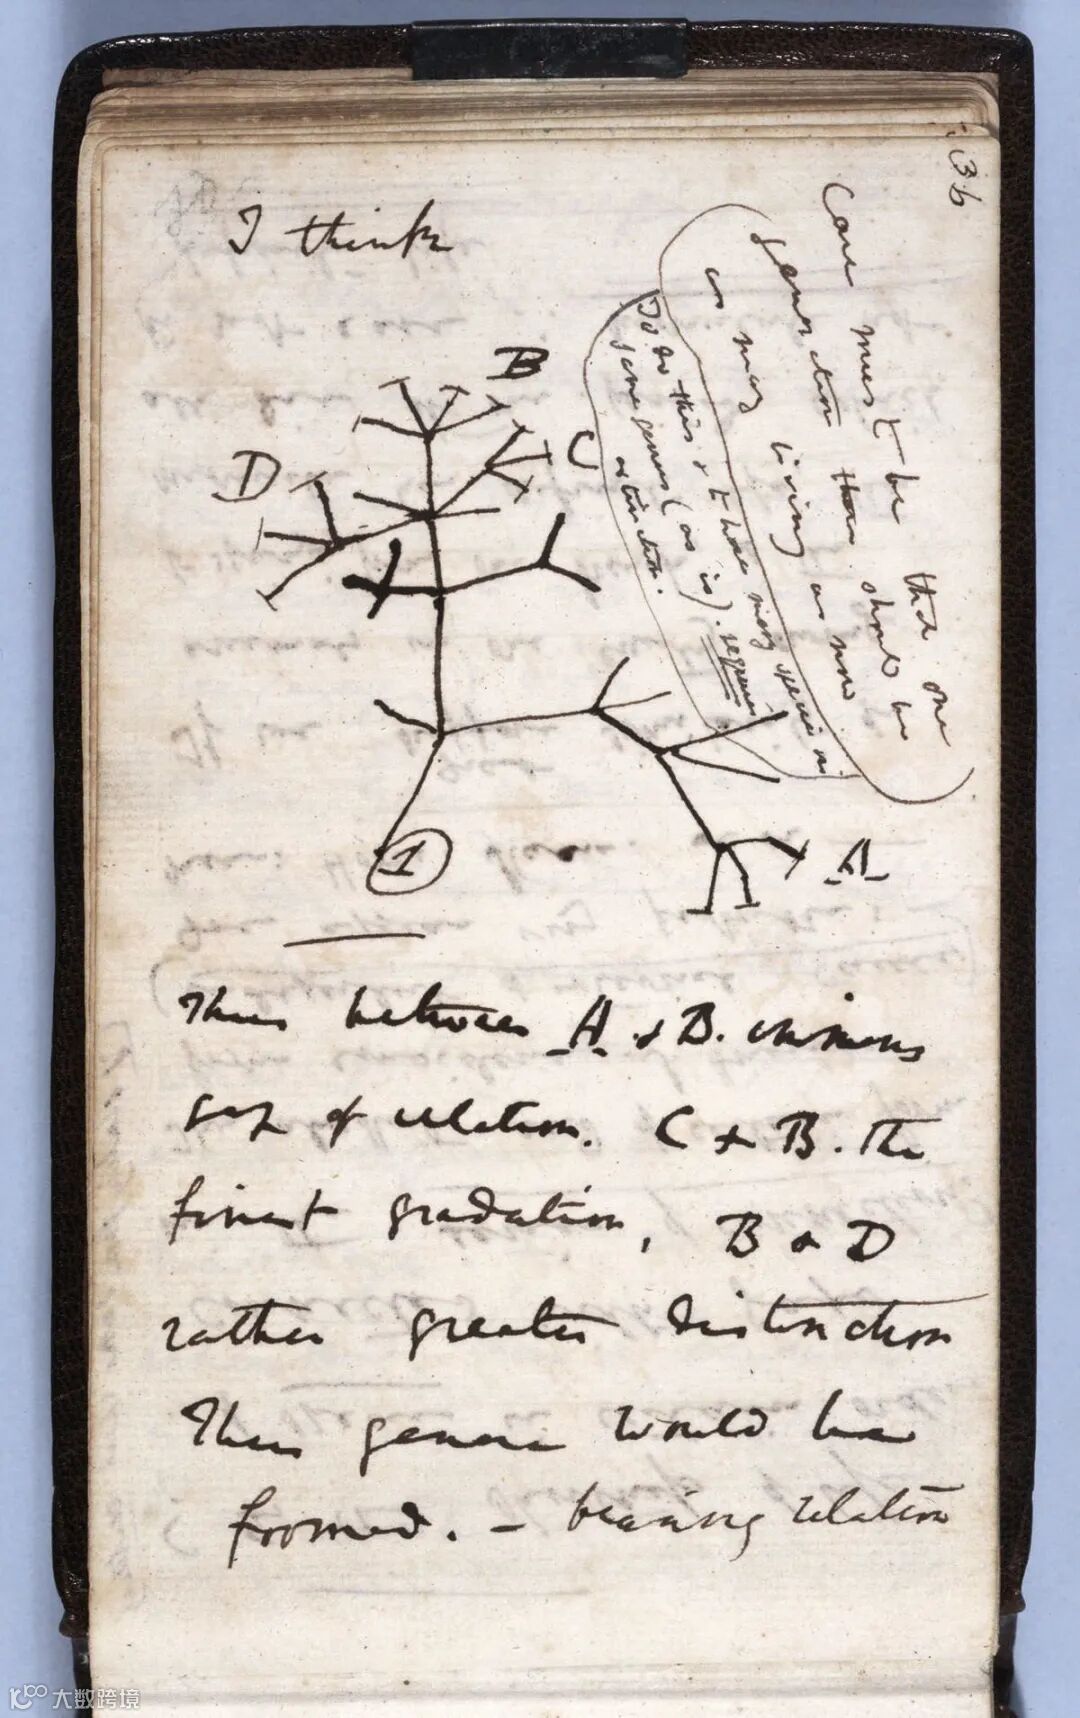 36
I think
Case must be that one
generation then should be
as many living as now
To do this & to have many species in
same genus (as is). requires
extinction.
B
C
D
A
1
Thus between A & B. immens
gap of relation. C & B. The
finest gradation, B & D
rather greater distinction
Thus genera would be
formed. — bearing relation
大数跨境